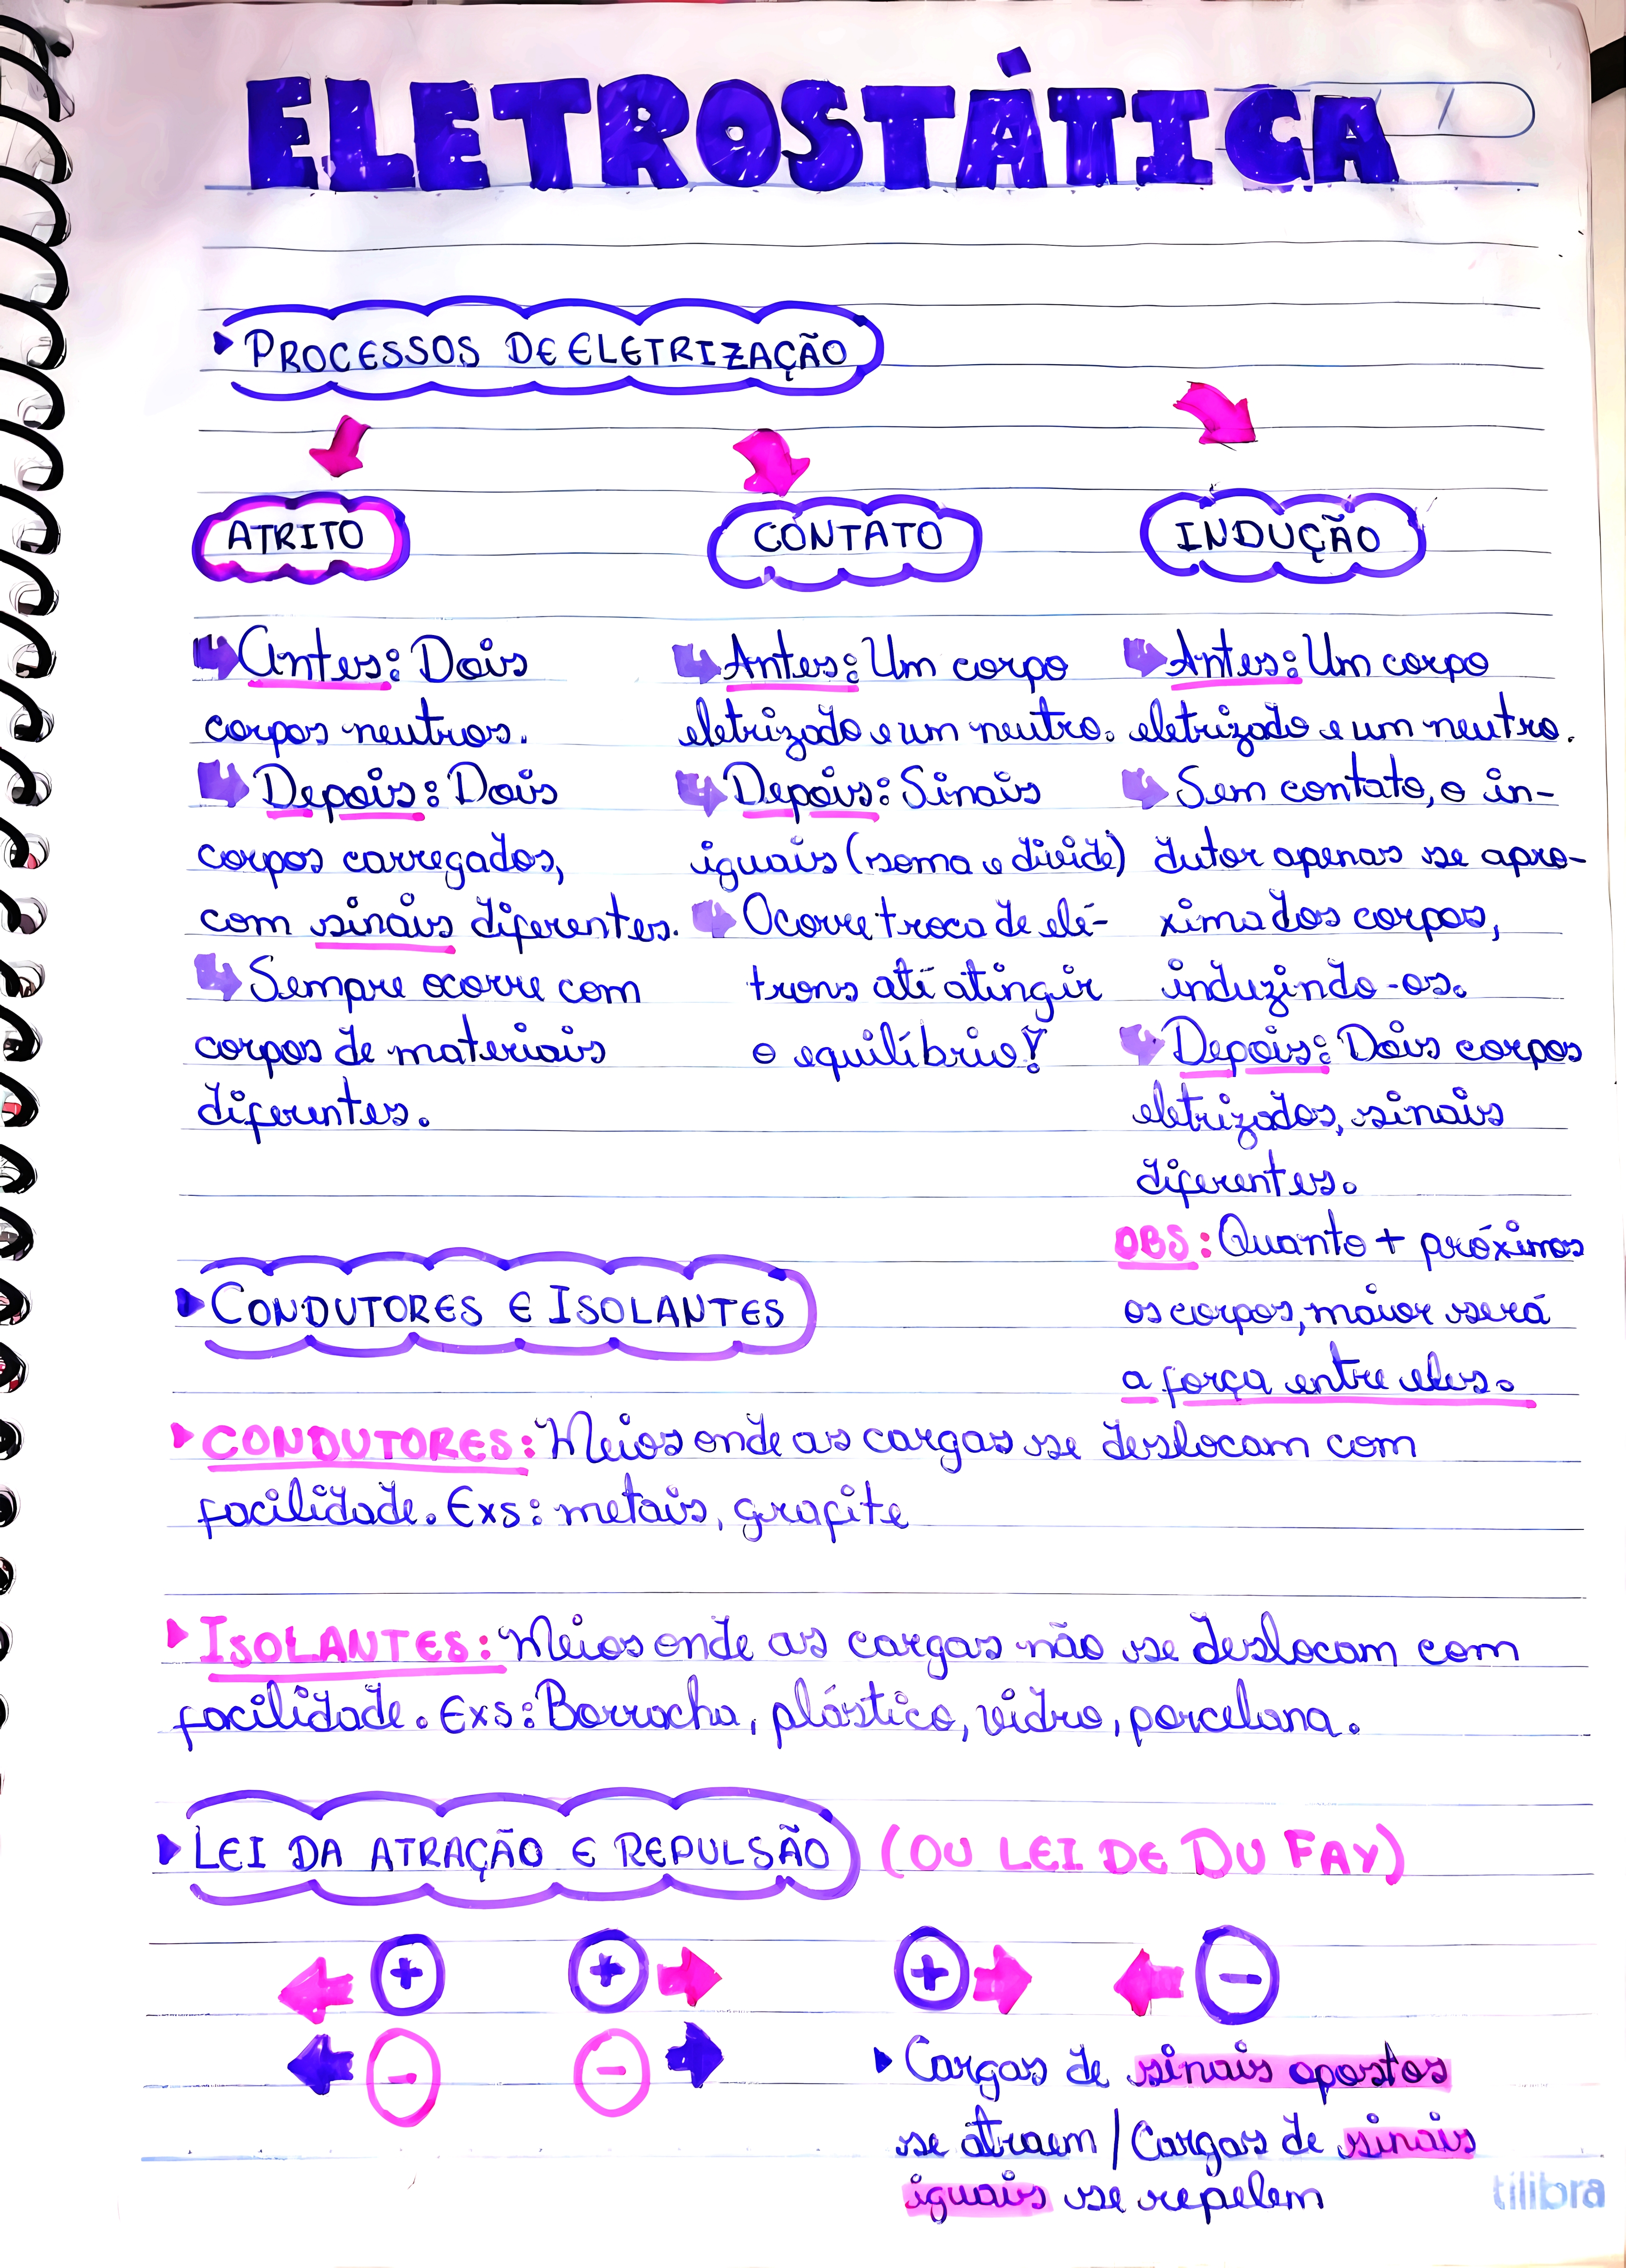 ELETROSTÁTICA
PROCESSOS DE ELETRIZAÇÃO
ATRITO
Antes: Dois
corpos neutros.
Depois: Dois
corpos carregados,
com sinais diferentes.
Sempre ocorre com
corpos de materiais
diferentes.
CONTATO
Antes: Um corpo
eletrizado e um neutro.
Depois: Sinais
iguais (soma e divide)
Ocorre troca de elé-
trons até atingir
o equilíbrio!
INDUÇÃO
Antes: Um corpo
eletrizado e um neutro.
Sem contato, o in-
dutor apenas se apro-
xima dos corpos,
induzindo-os.
Depois: Dois corpos
eletrizados, sinais
diferentes.
OBS: Quanto + próximos
os corpos, maior será
a força entre eles.
CONDUTORES E ISOLANTES
CONDUTORES: Meios onde as cargas se deslocam com
facilidade. Exs: metais, grafite
ISOLANTES: Meios onde as cargas não se deslocam com
facilidade. Exs: Borracha, plástico, vidro, porcelana.
LEI DA ATRAÇÃO E REPULSÃO (OU LEI DE DU FAY)
+ + + -
- -
Cargas de sinais opostos
se atraem / Cargas de sinais
iguais se repelem
tilibra